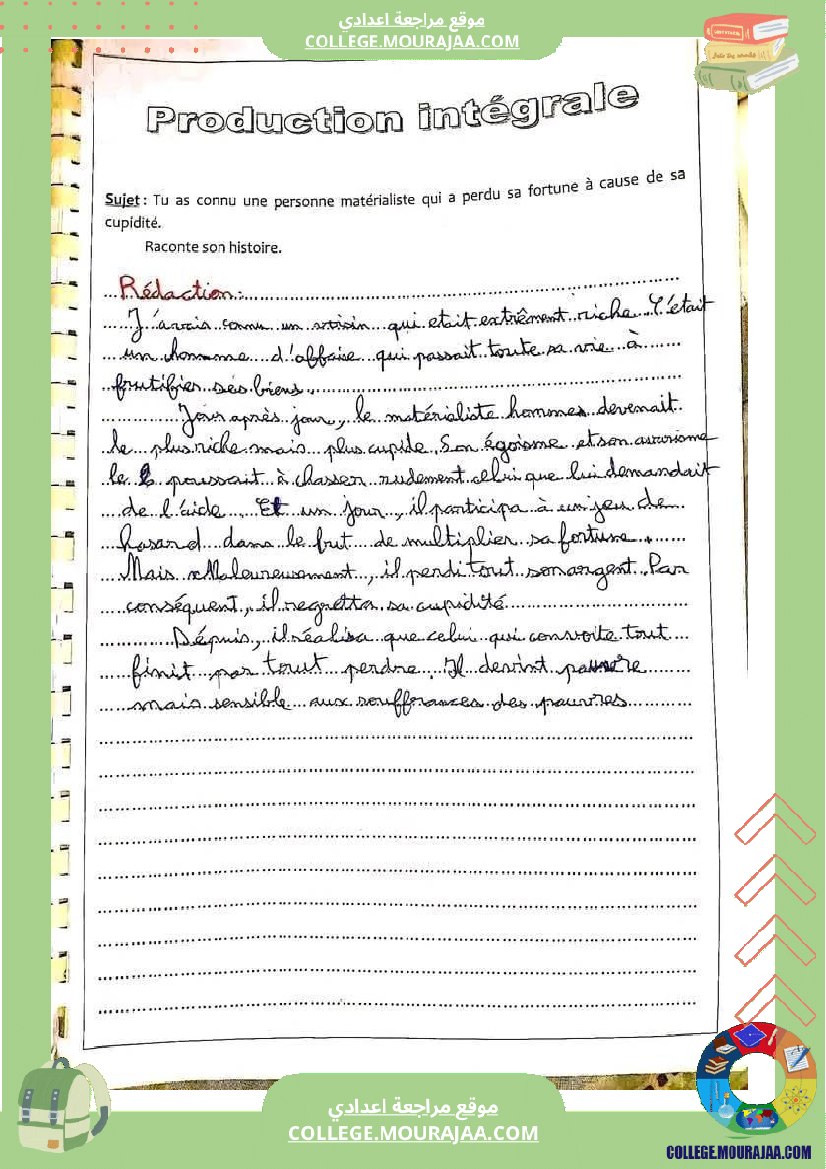 موقع مراجعة اعدادي
COLLEGE.MOURAJAA.COM
Production intégrale
Sujet : Tu as connu une personne matérialiste qui a perdu sa fortune à cause de sa
cupidité.
Raconte son histoire.
Rédaction:
J'avais connu un qui etait extrêment riche. C'était
un homme d'affaire qui passait toute sa vie à
frutifier ses biens.
Jour après jour, le matérialiste hommes devenait
le plus riche mais plus cupide. Son égoisme et son
le poussait à chasser rudement celui que lui demandait
de l'aide. Et un jour, il participa à un jeu de
hasard dans le but de multiplier sa fortune.
Mais Maleureusement, il perdi tout son argent. Par
conséquent, il regretta sa cupidité
Dépuis, il réalisa que celui qui convoite tout
finit par tout perdre. Il devint pauvre
mais sensible aux souffrances des pauvres
موقع مراجعة اعدادي
COLLEGE.MOURAJAA.COM
COLLEGE.MOURAJAA.COM